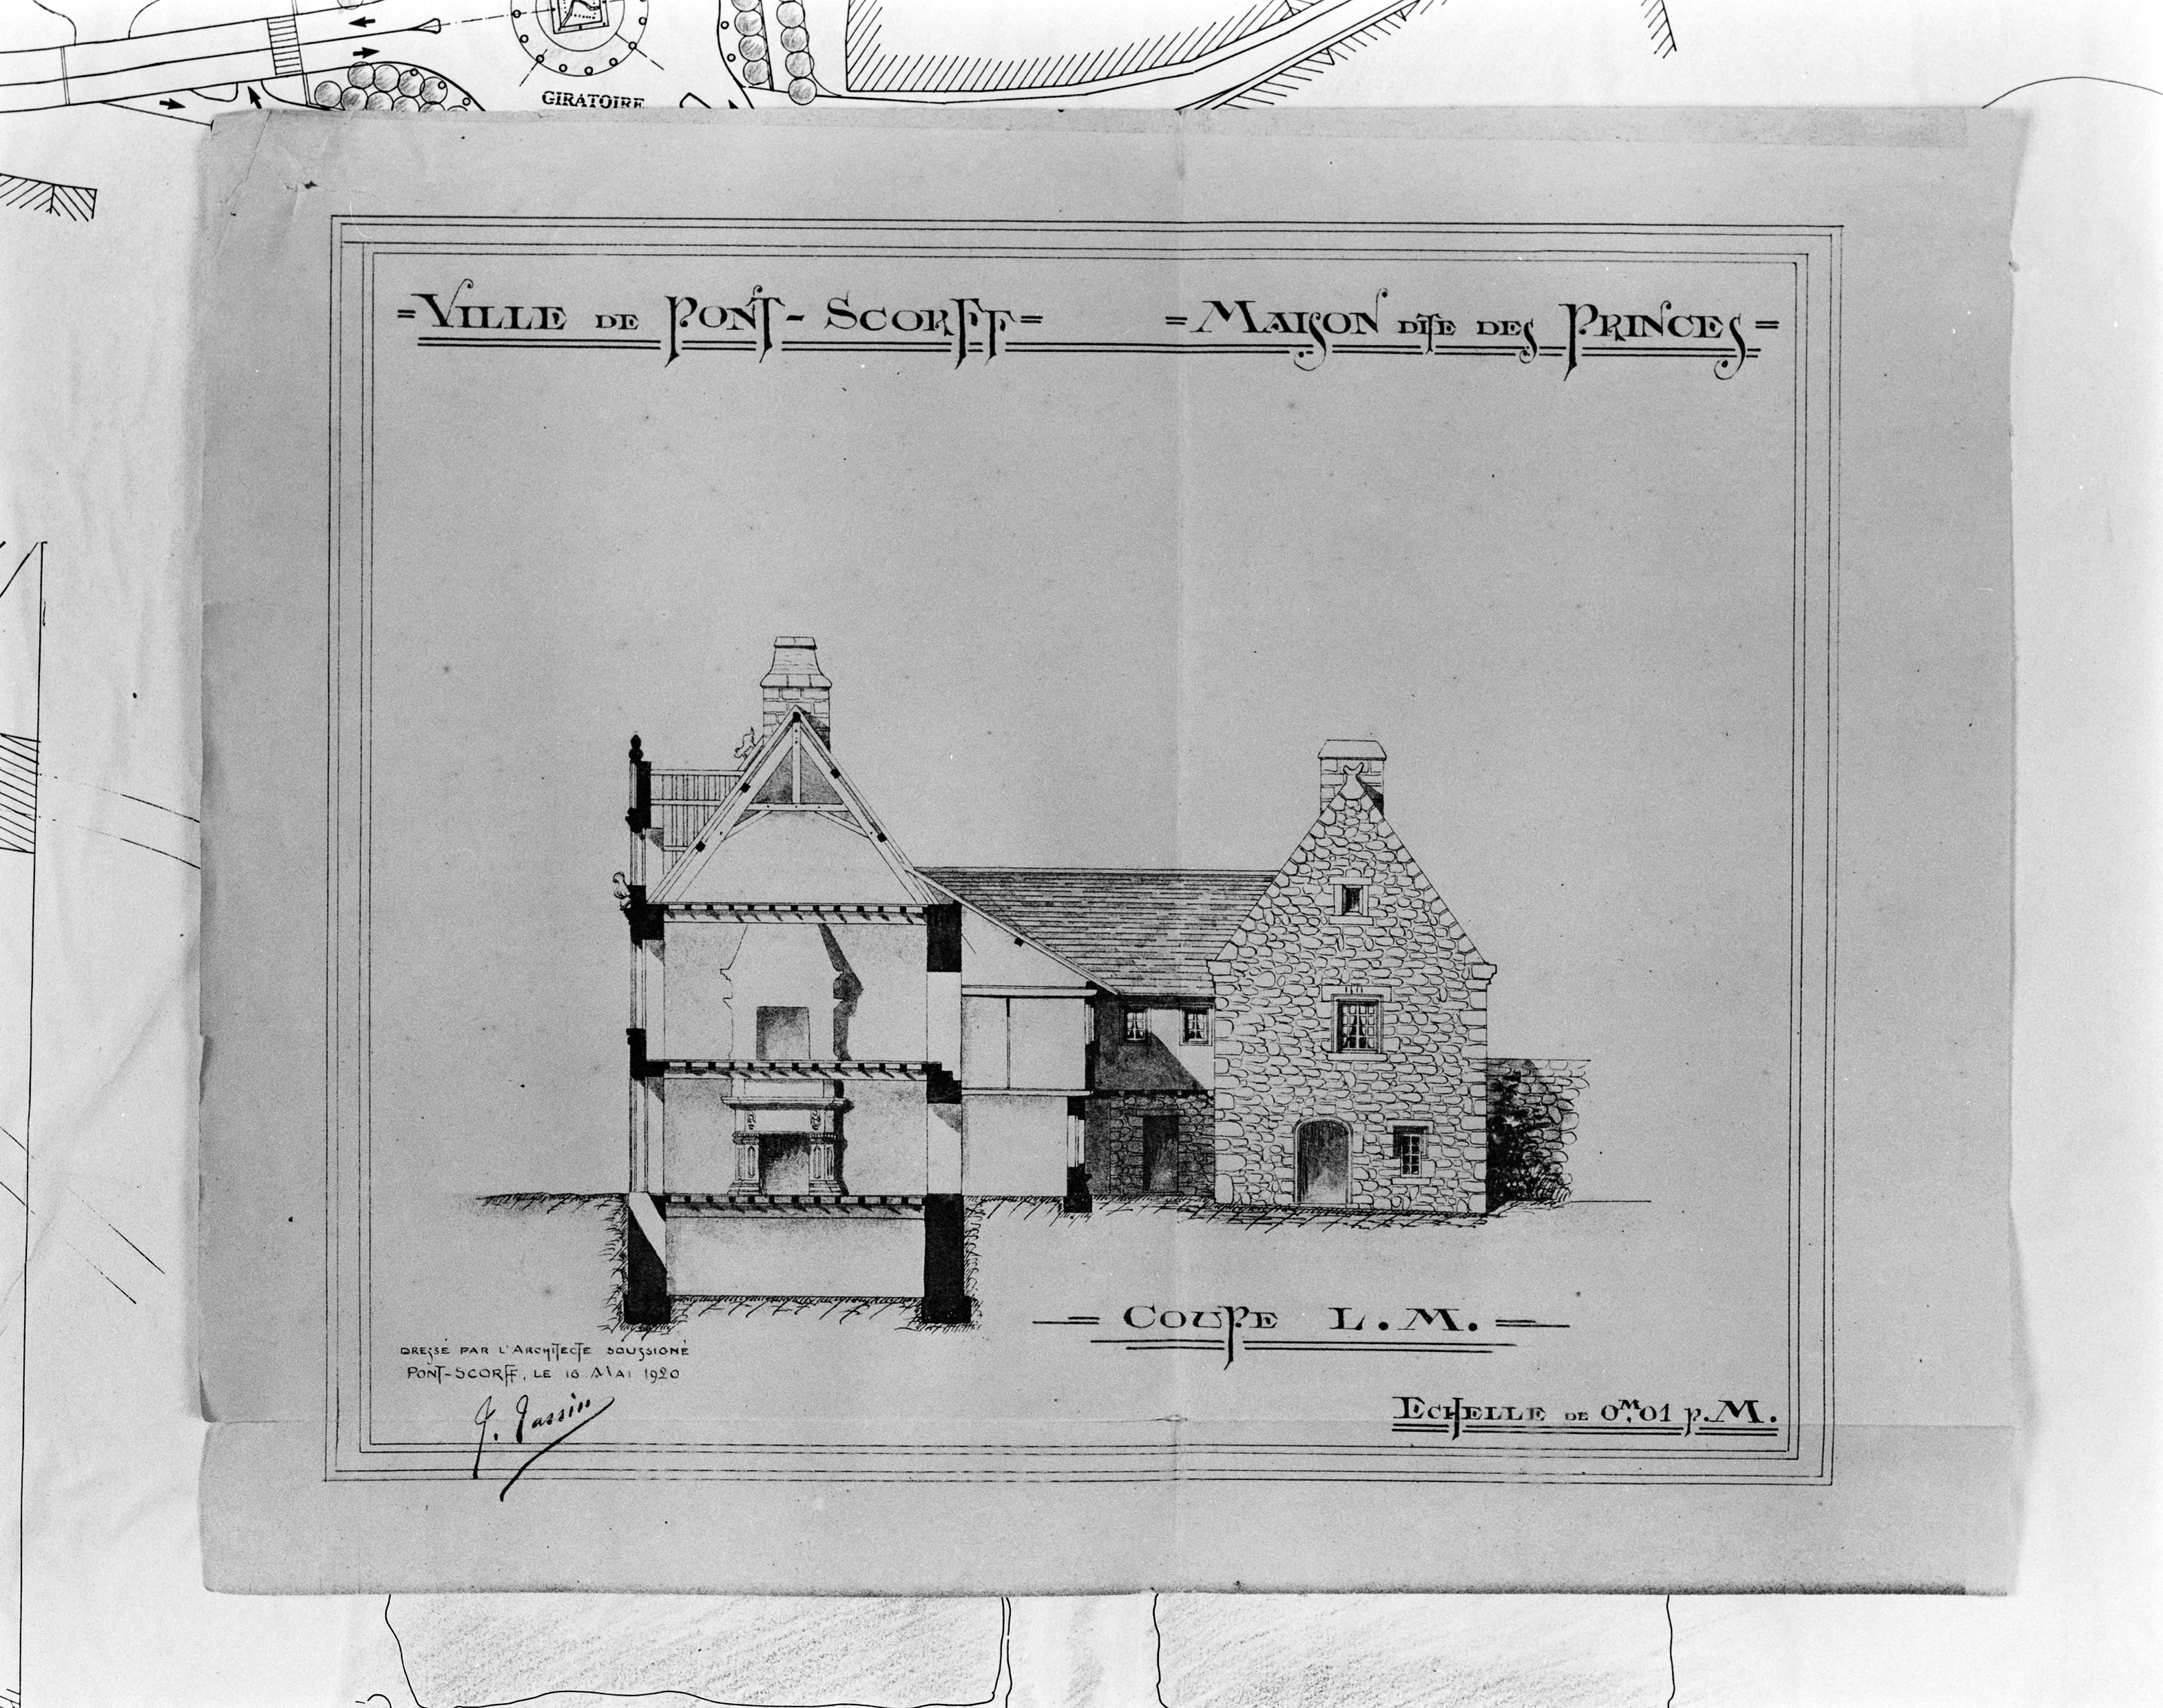 GIRATOIRE
=VILLE DE PONT-SCORFF= =MAISON DITE DES PRINCES=
=COUPE L.M.=
DRESSÉ PAR L'ARCHITECTE SOUSSIGNÉ
PONT-SCORFF, LE 16 MAI 1920
ECHELLE DE 0M.01 p.M.